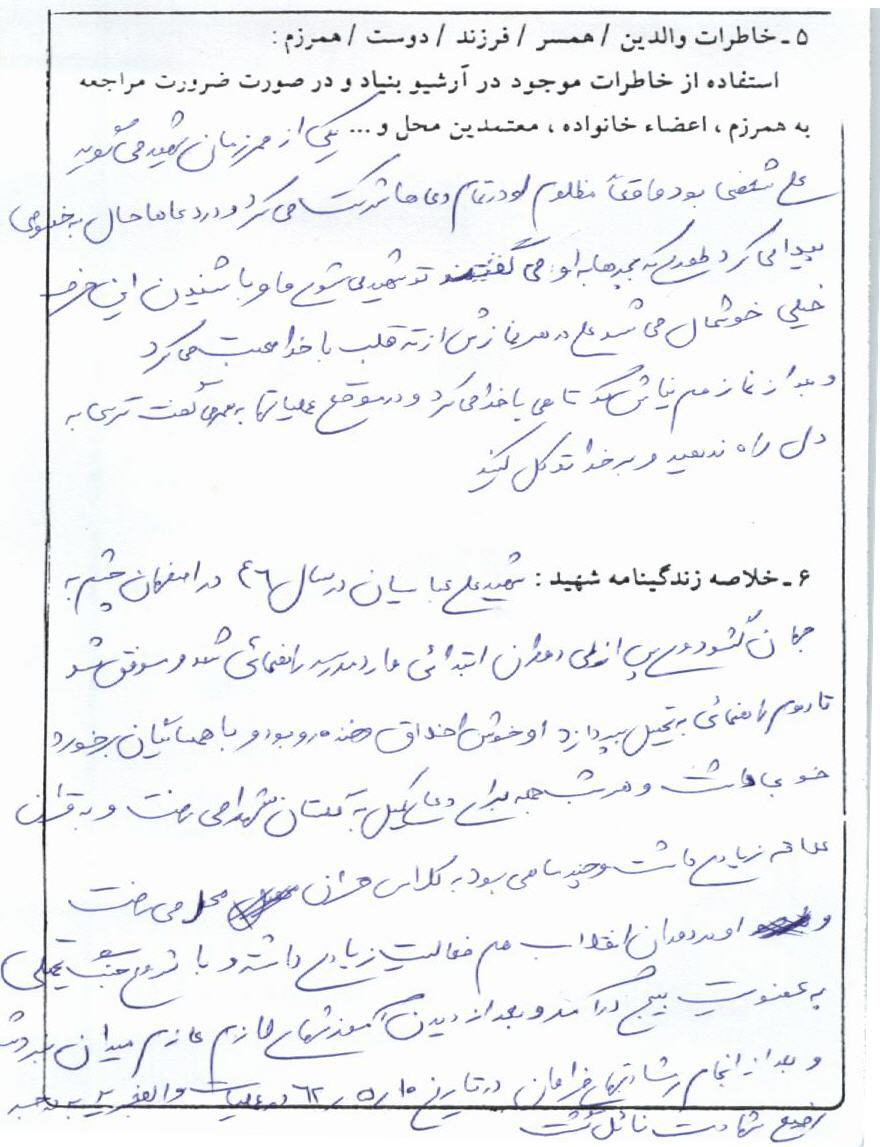 ۵ ـ خاطرات والدین / همسر / فرزند / دوست / همرزم :
استفاده از خاطرات موجود در آرشیو بنیاد و در صورت ضرورت مراجعه
به همرزم ، اعضاء خانواده ، معتمدین محل و ... یکی از همرزمان شهید می گوید
علی شخصی بود واقعاً مظلوم او در تمام دعاها شرکت می کرد و در دعاها حال به خصوصی
پیدا می کرد طوری که بچه‌ها به او می گفتند تو شهید می شوی و او با شنیدن این حرف
خیلی خوشحال می شد علی در هر نمازش از ته قلب با خدا صحبت می کرد
و بعد از نماز هم نیایش با خدا می کرد و در موقع عملیاتها به همه می گفت ترسی به
دل راه ندهید و بر خدا توکل کنید
۶ ـ خلاصه زندگینامه شهید : شهید علی عباسیان در سال ٤٦ در اصفهان چشم به
جهان گشود وی پس از طی دوران ابتدائی وارد مدرسه راهنمائی شد و موفق شد
تا دوم راهنمائی به تحصیل بپردازد او خوش اخلاق خنده رو بود و با همسائیان برخورد
خوبی داشت و هر شب جمعه برای دعای کمیل به گلستان شهدا می رفت و به قرآن
علاقه زیادی داشت و چند ماهی بود به کلاس قرآن محل می رفت
و او در دوران انقلاب هم فعالیت زیادی داشته و با شروع جنگ تحمیلی
به عضویت بسیج درآمد و بعد از دیدن آموزشهای لازم عازم میدان نبرد شد
و بعد از انجام رشادتهای فراوان در تاریخ ۱۰ ر ۵ ر ۶۲ در عملیات والفجر ۲ به درجه
رفیع شهادت نائل گشت